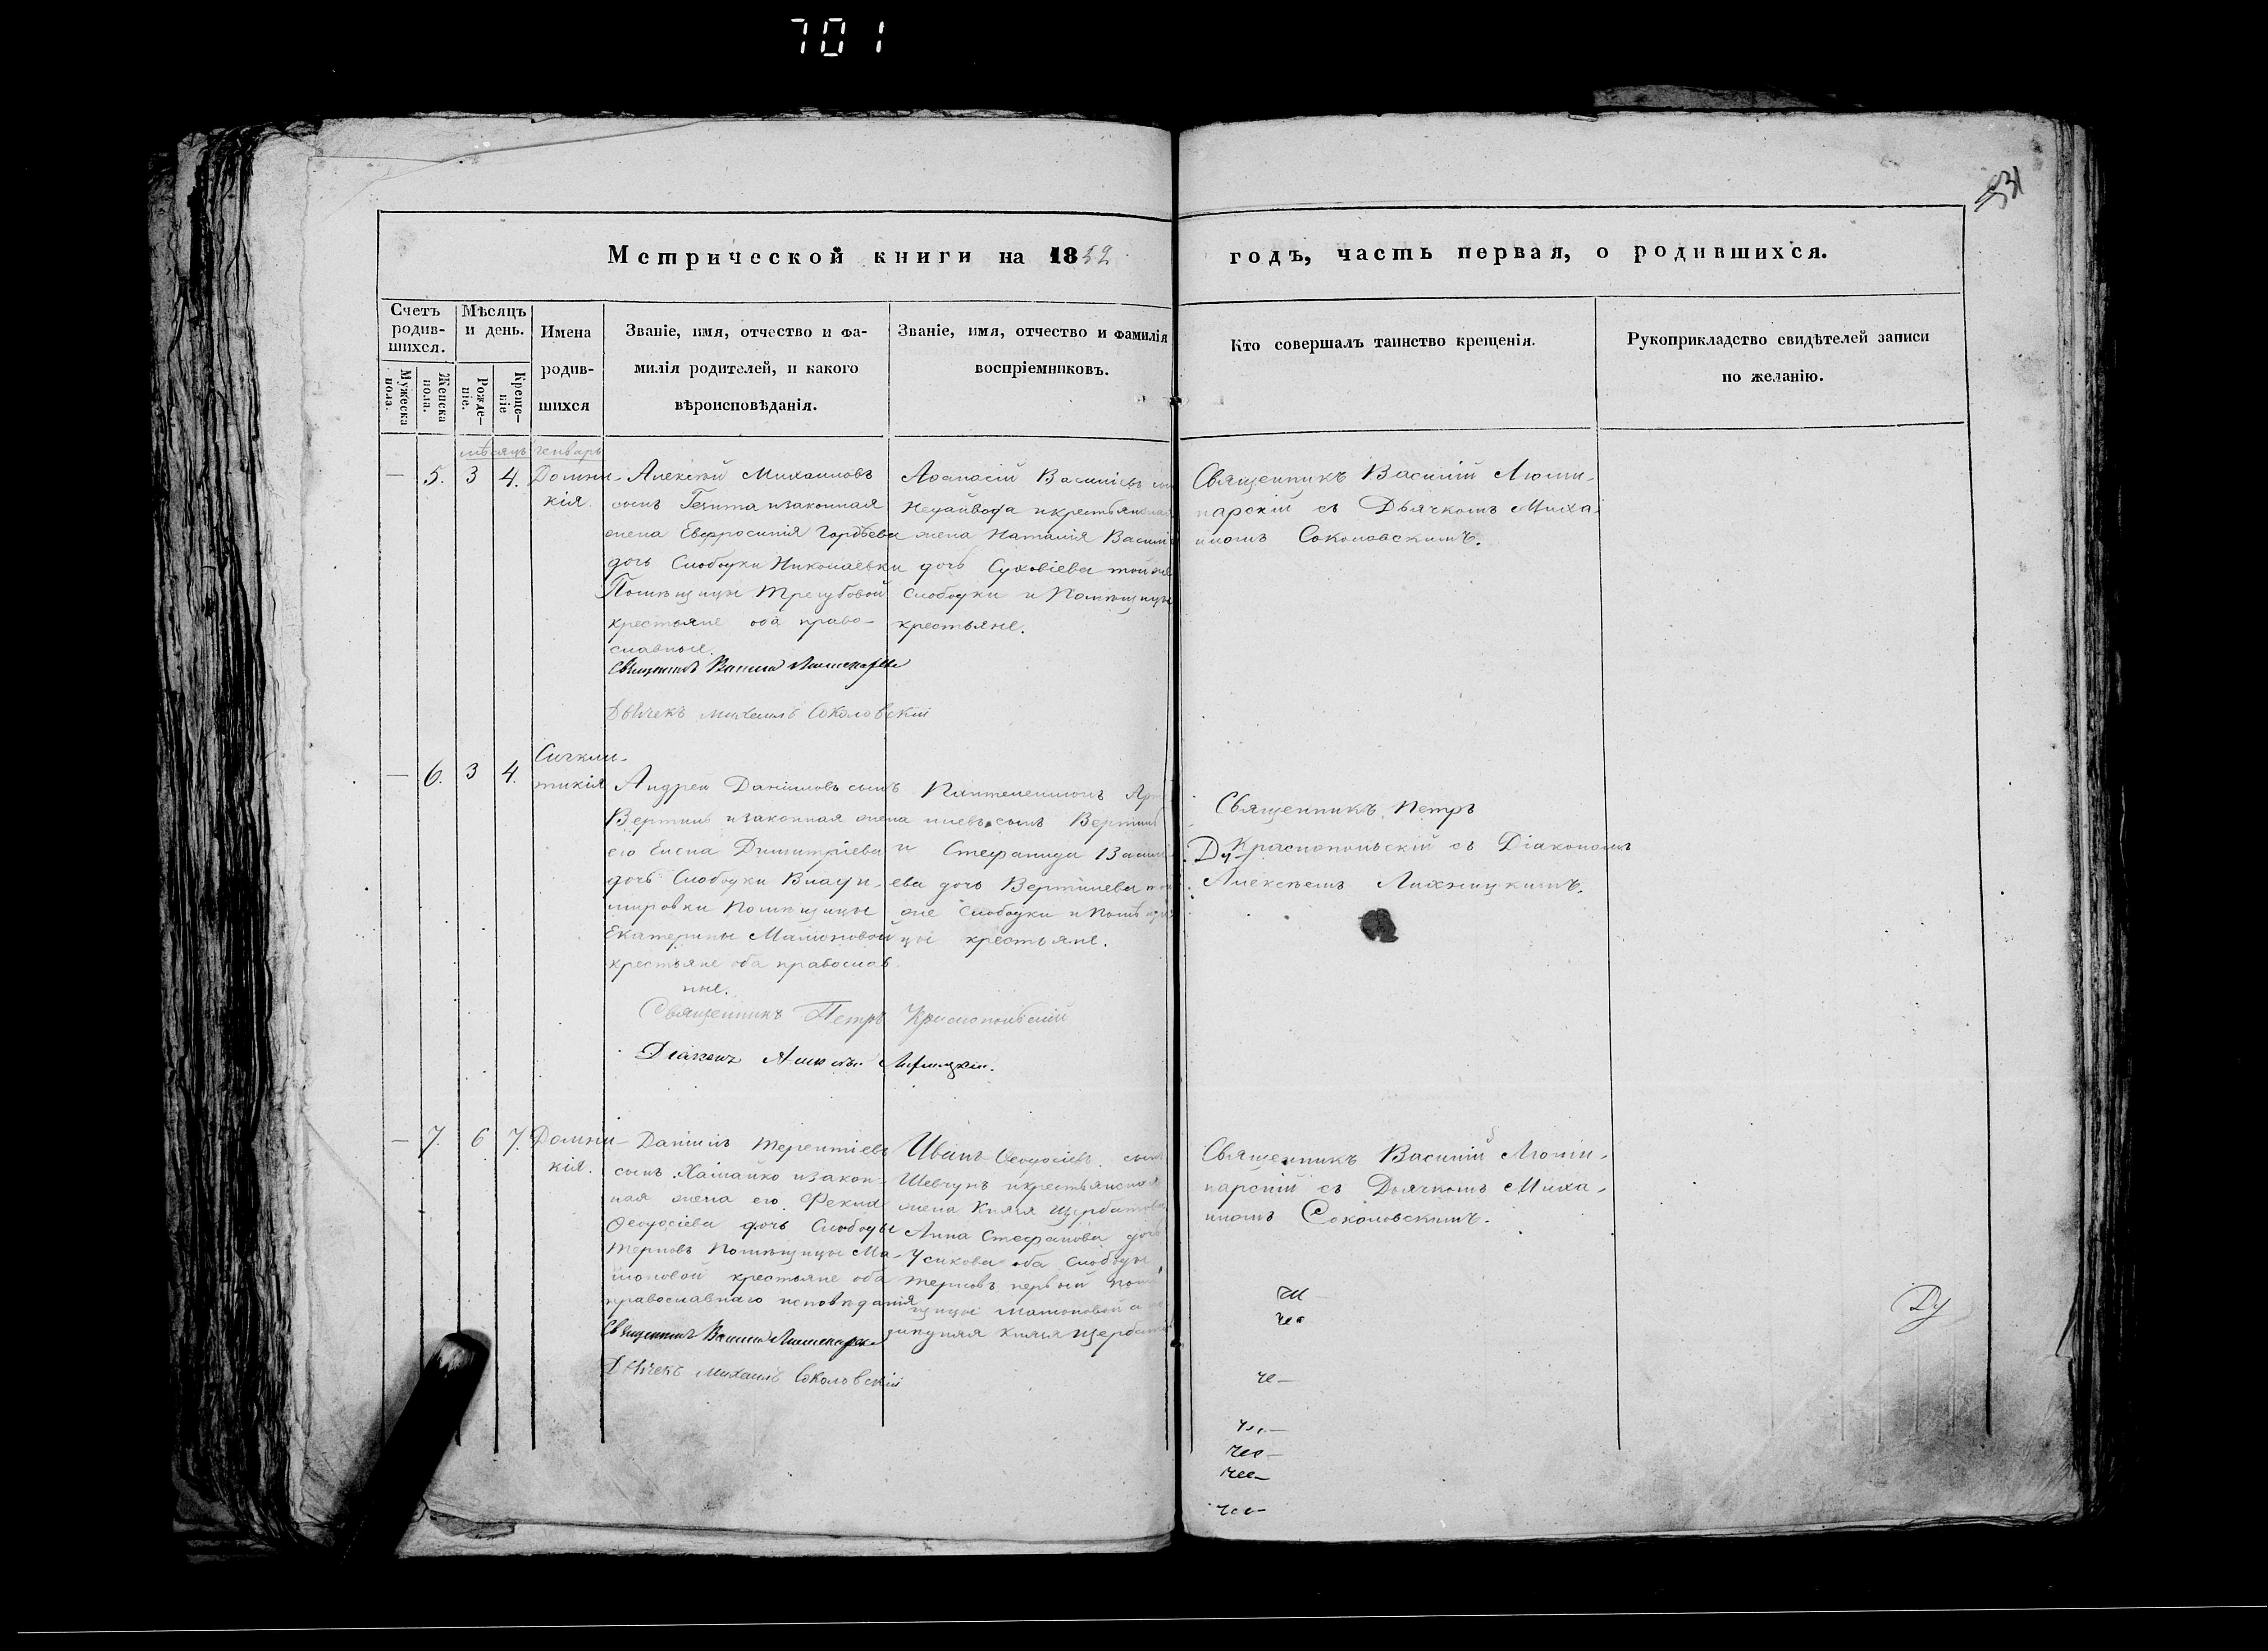 701
531
Метрической книги на 1852 годъ, часть первая, о родившихся.
Счетъ родив-шихся.
Мужеска пола.
Женска пола.
Мѣсяцъ и день.
Рожде-ніе.
Креще-ніе
Имена
родив-
шихся
Званіе, имя, отчество и фа-
милія родителей, и какого
вѣроисповѣданія.
Званіе, имя, отчество и фамилія
воспріемниковъ.
Кто совершалъ таинство крещенія.
Рукоприкладство свидѣтелей записи
по желанію.
мѣсяцъ Генварь
— 5. 3 4.
Домни-
кія.
Алексѣй Михаиловъ
сынъ изаконная
жена Евфросинія Гордѣева
дочь Слободки Николаевки
Помѣщицы Трегубовой
крестьяне оба право-
славные.
Священникъ Василій
Дьячекъ Михаилъ Соколовскій
Аѳанасій Василіевъ
и крестьянская
жена Наталія
дочь Суховіева той же
Слободки и Помѣщицы
крестьяне.
Священникъ Василій Люти-
нарскій съ Дьячкомъ Миха-
иломъ Соколовскимъ.
— 6. 3 4.
Сигкли-
тикія
Андрей Даніиловъ сынъ
Вертилъ изаконная жена
его Елена Димитріева
дочь Слободки Влади-
мировки Помѣщицы
Екатерины Мамоновой
крестьяне оба православ
ные.
Священникъ Петръ Краснопольскій
Діаконъ Алексѣй
Пантелеимонъ
сынъ
и Стефанида
ева дочь Вертилева
же Слободки и
цы крестьяне.
Священникъ Петръ
Краснопольскій съ Діакономъ
Алексѣемъ Лихницкимъ.
— 7. 6 7.
Домни-
кія.
Даніилъ Терентіевъ
сынъ Хашайко изакон-
ная жена его
Ѳеодосіева дочь Слободы
Терновъ Помѣщицы Ма-
моновой крестьяне оба
православнаго исповѣданія
Священникъ Василій
Дьячекъ Михаилъ Соколовскій
Иванъ Ѳеодосіевъ сынъ
Шевчукъ и крестьянская
жена Князя Щербатова
Анна Стефанова дочь
Усикова оба Слободы
Терновъ первый
Мамоновой а
Князя
Священникъ Василій Люти-
нарскій съ Дьячкомъ Миха-
иломъ Соколовскимъ.